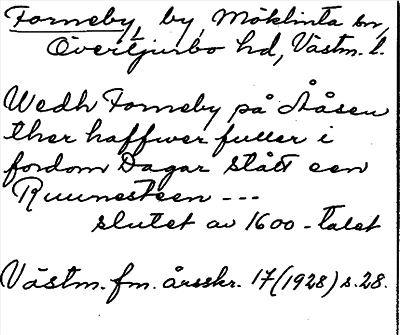 Forneby, by, Möklinta sn,
Övertjurbo hd, Västm. l.
Wedh Forneby på Ååsen
ther haffwer fuller i
fordom Dagar stått een
Ruunesteen ---
slutet av 1600-talet
Västm. fm. årsskr. 17 (1928) s. 28.